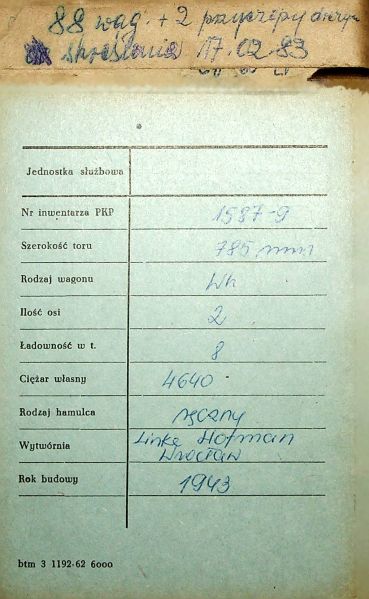 88 wag. + 2 przyczepy
skreślenia 17.02.83
Jednostka służbowa
Nr inwentarza PKP 1587-9
Szerokość toru 785 mm
Rodzaj wagonu Wh
Ilość osi 2
Ładowność w t. 8
Ciężar własny 4640
Rodzaj hamulca ręczny
Wytwórnia Linke Hofman
Wrocław
Rok budowy 1943
btm 3 1192-62 6000